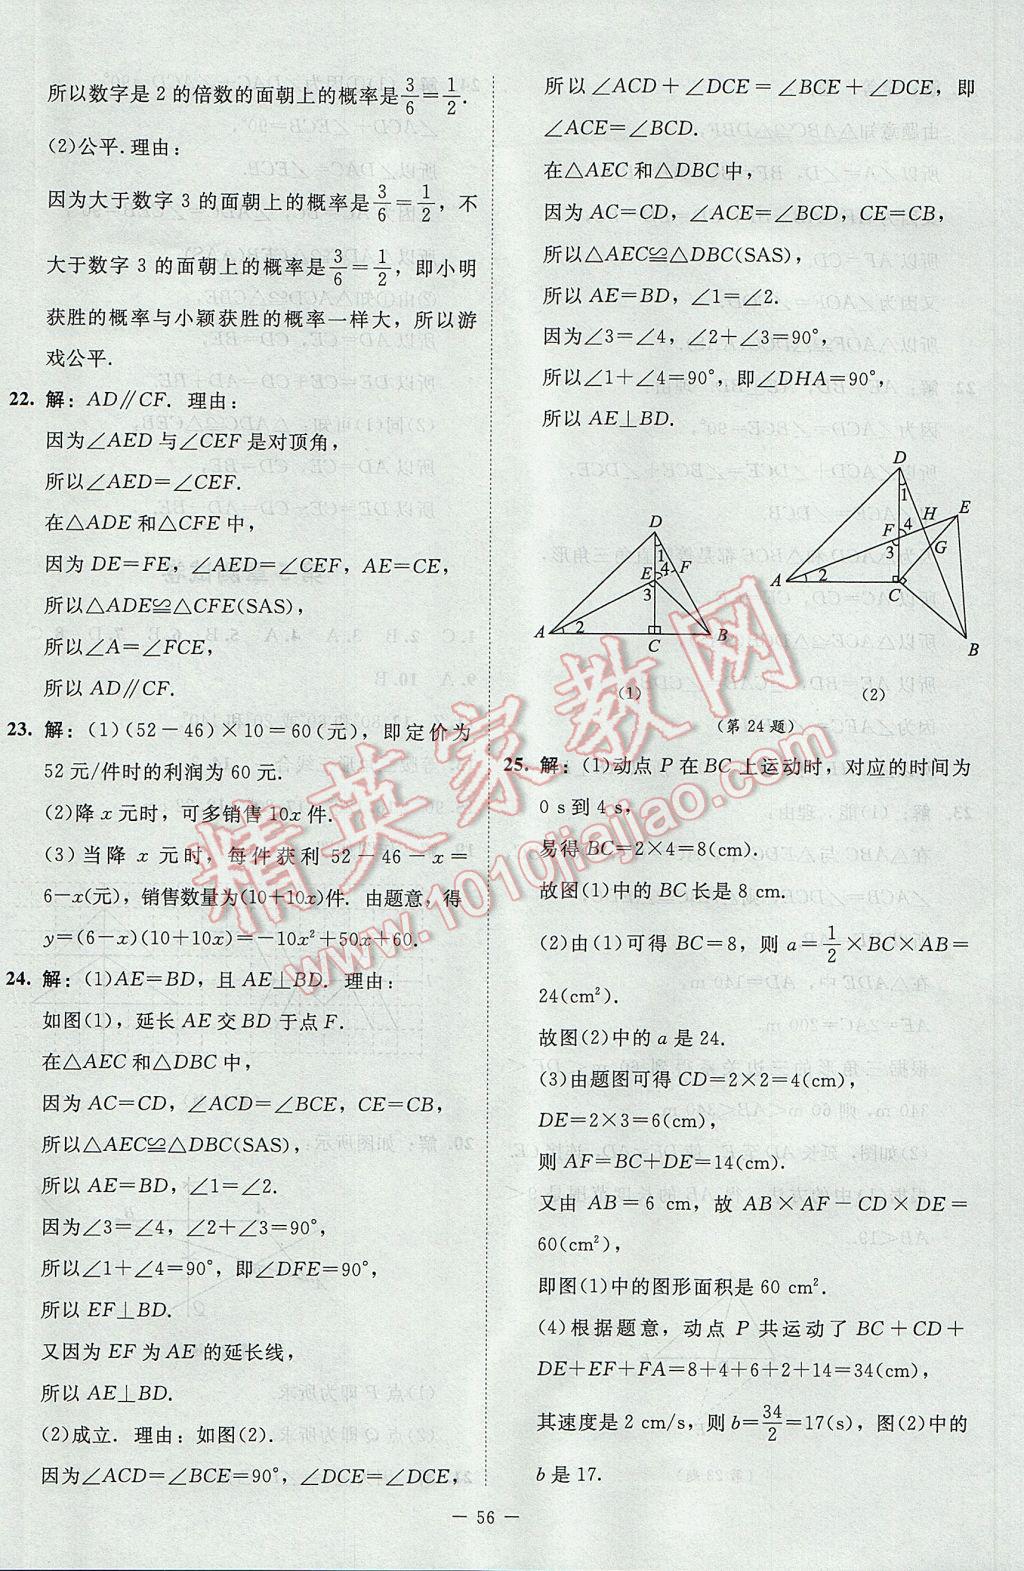 所以数字是 2 的倍数的面朝上的概率是3/6=1/2.
(2)公平.理由:
因为大于数字 3 的面朝上的概率是3/6=1/2,不
大于数字 3 的面朝上的概率是3/6=1/2,即小明
获胜的概率与小颖获胜的概率一样大,所以游
戏公平.
22. 解:AD∥CF. 理由:
因为∠AED 与∠CEF 是对顶角,
所以∠AED=∠CEF.
在△ADE 和△CFE 中,
因为 DE=FE,∠AED=∠CEF,AE=CE,
所以△ADE≌△CFE(SAS),
所以∠A=∠FCE,
所以 AD∥CF.
23. 解:(1)(52-46)×10=60(元),即定价为
52 元/件时的利润为 60 元.
(2)降 x 元时,可多销售 10x 件.
(3)当降 x 元时,每件获利 52-46-x=
6-x(元),销售数量为(10+10x)件. 由题意,得
y=(6-x)(10+10x)=-10x²+50x+60.
24. 解:(1)AE=BD,且 AE⊥BD. 理由:
如图(1),延长 AE 交 BD 于点 F.
在△AEC 和△DBC 中,
因为 AC=CD,∠ACD=∠BCE,CE=CB,
所以△AEC≌△DBC(SAS),
所以 AE=BD,∠1=∠2.
因为∠3=∠4,∠2+∠3=90°,
所以∠1+∠4=90°,即∠DFE=90°,
所以 EF⊥BD.
又因为 EF 为 AE 的延长线,
所以 AE⊥BD.
(2)成立. 理由:如图(2).
因为∠ACD=∠BCE=90°,∠DCE=∠DCE,
所以 ∠ACD+∠DCE=∠BCE+∠DCE,即
∠ACE=∠BCD.
在△AEC 和△DBC 中,
因为 AC=CD,∠ACE=∠BCD,CE=CB,
所以△AEC≌△DBC(SAS),
所以 AE=BD,∠1=∠2.
因为∠3=∠4,∠2+∠3=90°,
所以∠1+∠4=90°,即∠DHA=90°,
所以 AE⊥BD.
D
1
E 4 F
3
A 2
C
B
(1)
D
1
H E
F 4
G
3
A 2
C
B
(2)
(第 24 题)
25. 解:(1)动点 P 在 BC 上运动时,对应的时间为
0 s 到 4 s,
易得 BC=2×4=8(cm).
故图(1)中的 BC 长是 8 cm.
(2)由(1)可得 BC=8,则 a=1/2×BC×AB=
24(cm²).
故图(2)中的 a 是 24.
(3)由题图可得 CD=2×2=4(cm),
DE=2×3=6(cm),
则 AF=BC+DE=14(cm).
又由 AB=6 cm,故 AB×AF-CD×DE=
60(cm²),
即图(1)中的图形面积是 60 cm².
(4)根据题意,动点 P 共运动了 BC+CD+
DE+EF+FA=8+4+6+2+14=34(cm),
其速度是 2 cm/s,则 b=34/2=17(s),图(2)中的
b 是 17.
精英家教网
www.1010jiajiao.com
— 56 —